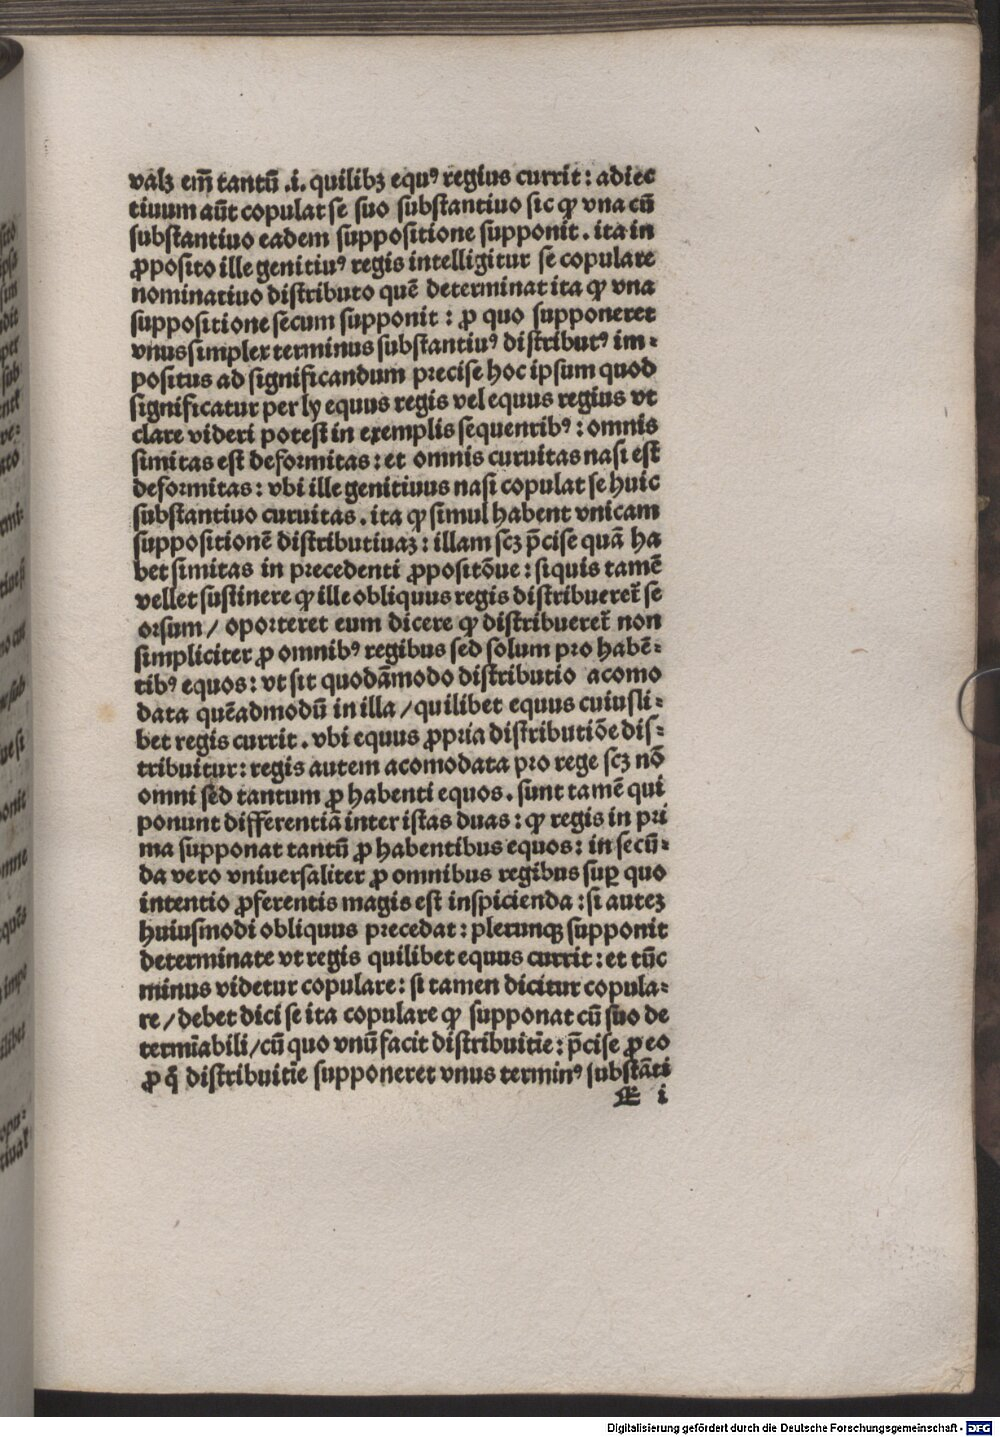 valꝫ em̄ tantū .i. quilibꝫ equꝰ regius currit: adiec
tiuum aūt copulat se suo substantiuo sic ꝙ vna cū
substantiuo eadem suppositione supponit. ita in
ꝓposito ille genitiuꝰ regis intelligitur se copulare
nominatiuo distributo quē determinat ita ꝙ vna
suppositione secum supponit: ꝓ quo supponeret
vnus simplex terminus substantiuꝰ distributꝰ im-
positus ad significandum precise hoc ipsum quod
significatur per ly equus regis vel equus regius vt
clare videri potest in exemplis sequentibꝰ: omnis
simitas est deformitas: et omnis curuitas nasi est
deformitas: vbi ille genitiuus nasi copulat se huic
substantiuo curuitas. ita ꝙ simul habent vnicam
suppositionē distributiuaꝫ: illam scꝫ p̄cise quā ha
bet simitas in precedenti ꝓpositōne: si quis tamē
vellet sustinere ꝙ ille obliquus regis distribueret̄ se
orsum/ oporteret eum dicere ꝙ distribueret̄ non
simpliciter ꝓ omnibꝰ regibus sed solum pro habē-
tibꝰ equos: vt sit quodāmodo distributio acomo
data quēadmodū in illa/ quilibet equus cuiusli-
bet regis currit. vbi equus ꝓpria distributiōe dis-
tribuitur: regis autem acomodata pro rege scꝫ nō
omni sed tantum ꝓ habenti equos. sunt tamē qui
ponunt differentiā inter istas duas: ꝙ regis in pri
ma supponat tantū ꝓ habentibus equos: in secū-
da vero vniuersaliter ꝓ omnibus regibus suꝑ quo
intentio ꝓferentis magis est inspicienda: si auteꝫ
huiusmodi obliquus precedat: plerunqꝫ supponit
determinate vt regis quilibet equus currit: et tūc
minus videtur copulare: si tamen dicitur copula-
re/ debet dici se ita copulare ꝙ supponat cū suo de
termīabili/ cū quo vnū facit distribuitīe: p̄cise ꝓ eo
ꝓ q̄ distribuitīe supponeret vnus terminꝰ substāti
E i
Digitalisierung gefördert durch die Deutsche Forschungsgemeinschaft - DFG